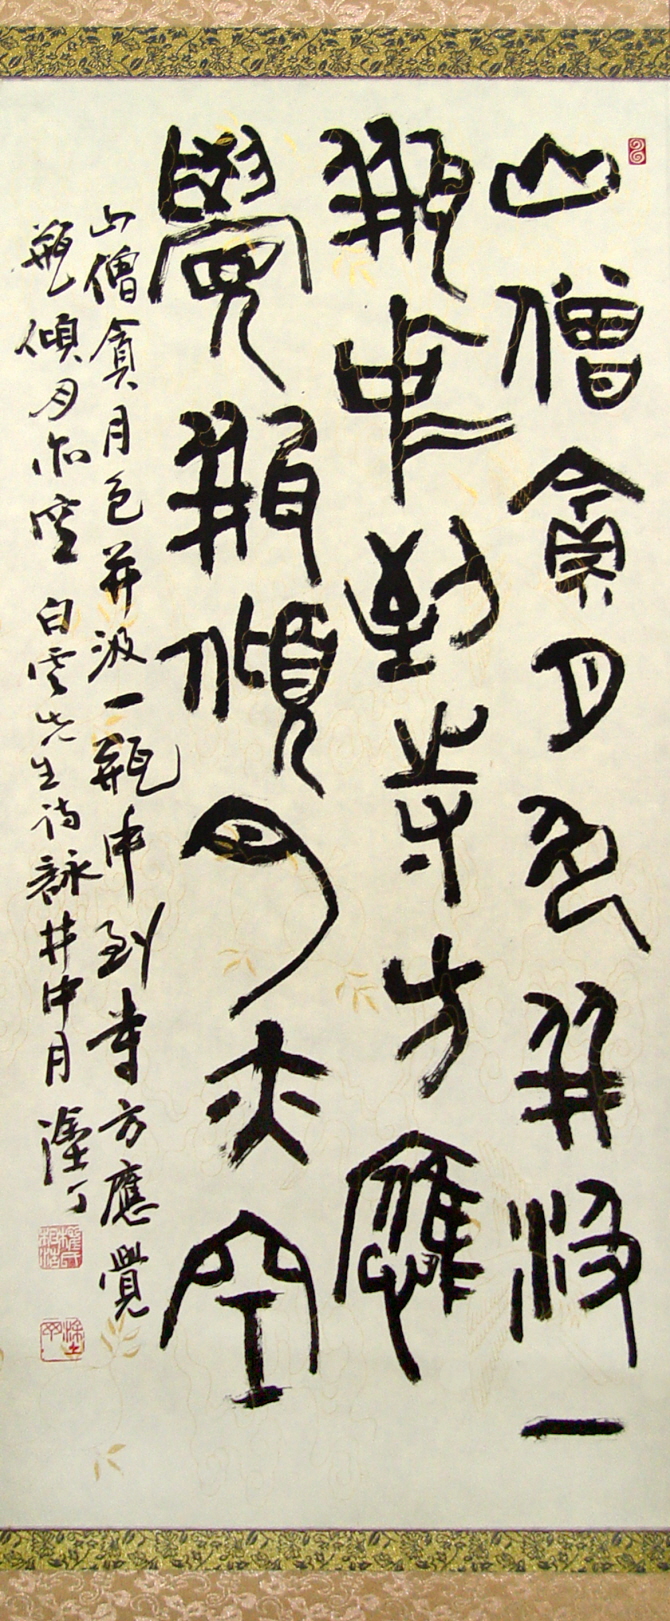 山僧貪月色并汲一
瓶中到寺方應
覺瓶傾月亦空
山僧貪月色并汲一瓶中到寺方應覺
瓶傾月亦空 白雲先生詩詠井中月